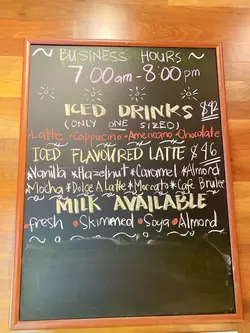 BUSINESS HOURS
7:00am - 8:00pm
ICED DRINKS $42
(ONLY ONE SIZED)
•Latte •Cappucino •Americano •Chocolate
ICED FLAVOURED LATTE $46
Vanilla *Hazelnut *Caramel *Almond
Mocha *Dolce A Latte *Maccoato *Cafe Brulee
MILK AVAILABLE
fresh •Skimmed •Soya •Almond